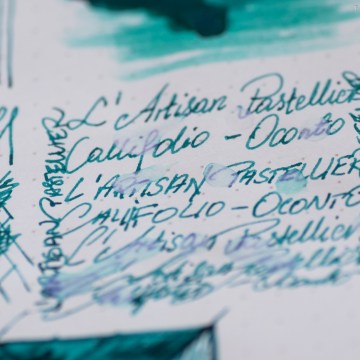 L'Artisan Pastellier
Callifolio - Oconto
L'ARTISAN PASTELLIER
CALLIFOLIO - OCONTO
L'Artisan Pastellier
L'ARTISAN PASTELLIER